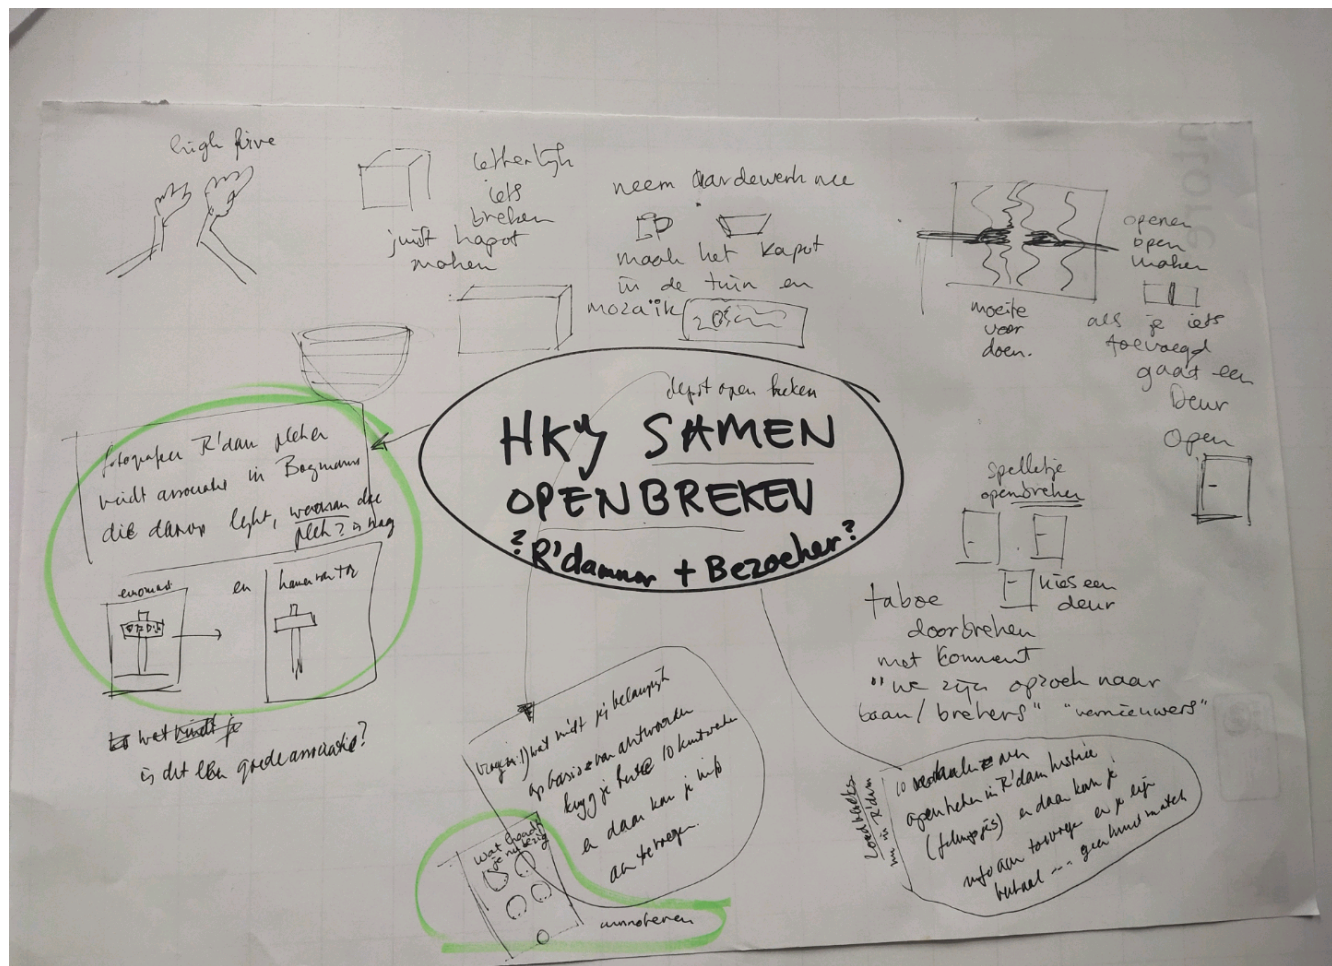 high five
letterlijk
iets
breken
juist kapot
maken
neem aardewerk mee
maak het kapot
in de tuin en
mozaïk
openen
open
maken
moeite
voor
doen.
als je iets
toevoegd
gaat een
Deur
open
depot open breken
SAMEN
OPENBREKEN
? R'dammer + Bezoeker?
fotografeer R'dam
in
die daarop lijkt, waarom die
plek?
euromast
en
hamer van
wat
is dit een goede associatie?
spelletje
openbreken
kies een
deur
taboe
doorbreken
met
"we zijn opzoek naar
baan/brekers" "vernieuwers"
wat vindt jij belangrijk
op basis van antwoorden
krijg je 10 kunstwerken
en daar kan je info
aan toevoegen.
wat houdt
je nu bezig
annoteren
10 over
openbreken in R'dam historie
en daar kan je
info aan toevoegen en je eigen
verhaal ... geen kunst match
in R'dam